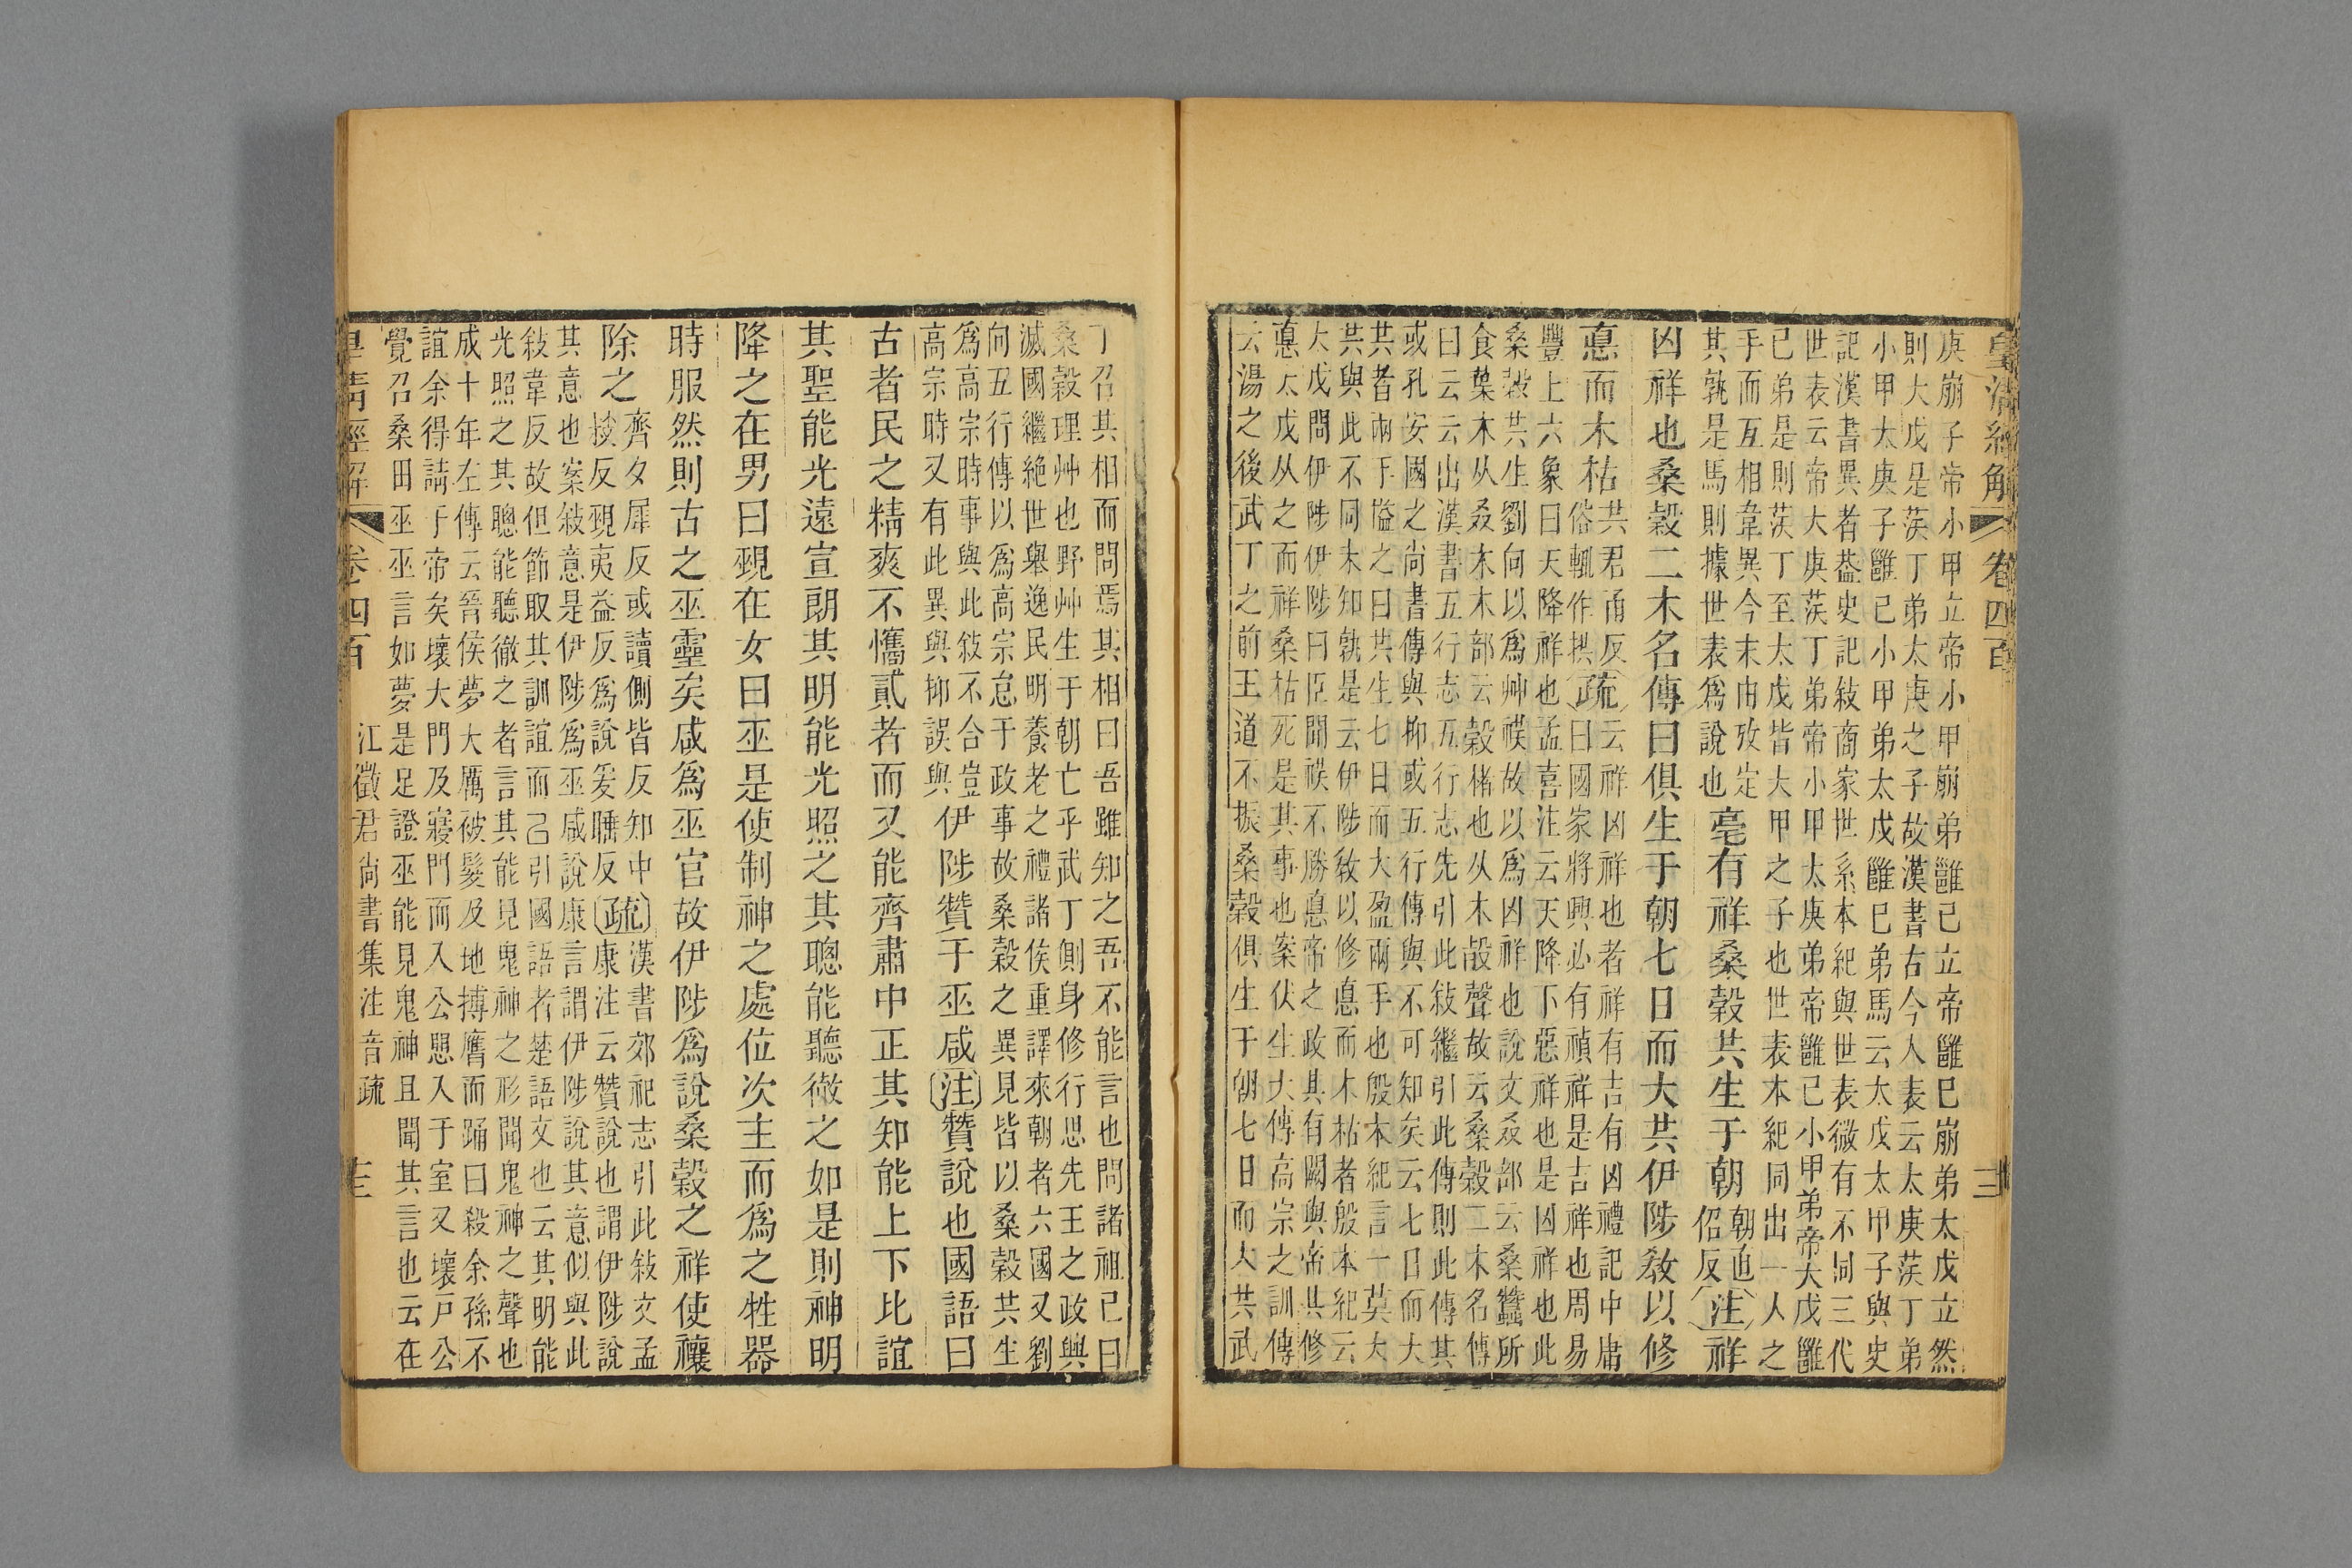 皇清經解 卷四百 三
庚崩子帝小甲立帝小甲崩弟雝己立帝雝己崩弟太戊立然
則大戊是茨丁弟太庚之子故漢書古今人表云太庚茨丁弟
小甲太庚子雝己小甲弟太戊雝巳弟馬云太戊太甲子與史
記漢書異者葢史記敍商家世系本紀與世表微有不同三代
世表云帝大庚茨丁弟帝小甲太庚弟帝雝己小甲弟帝大戊雝
己弟是則茨丁至太戊皆大甲之子也世表本紀同出一人之
手而互相韋異今末由攷定
其孰是馬則據世表爲說也
亳有祥桑穀共生于朝
朝直
佋反
注祥
凶祥也桑穀二木名傳曰俱生于朝七日而大共伊陟敎以修
悳而木枯
共君甬反
俗輒作拱
疏
云祥凶祥也者祥有吉有凶禮記中庸
曰國家將興必有禎祥是吉祥也周易
豐上六象曰天降祥也孟喜注云天降下惡祥也是凶祥也此
桑穀共生劉向以爲艸祆故以爲凶祥也說文叒部云桑蠶所
食葉木从叒木木部云穀楮也从木㱿聲故云桑穀二木名傳
曰云云出漢書五行志五行志先引此敍繼引此傳則此傳其
或孔安國之尚書傳與抑或五行傳與不可知矣云七日而大
共者兩手搤之曰共生七日而大盈兩手也殷本紀言一莫大
共與此不同未知孰是云伊陟敎以修悳而木枯者殷本紀云
大戊問伊陟伊陟曰臣聞祆不勝悳帝之政其有闕與帝其修
悳太戊从之而祥桑枯死是其事也案伏生大傳高宗之訓傳
云湯之後武丁之前王道不振桑穀俱生于朝七日而大共武
丁召其相而問焉其相曰吾雖知之吾不能言也問諸祖己曰
桑穀理艸也野艸生于朝亡乎武丁側身修行思先王之政興
滅國繼絕世舉逸民明養老之禮諸侯重譯來朝者六國又劉
向五行傳以爲高宗怠于政事故桑穀之異見皆以桑穀共生
爲高宗時事與此敍不合豈
高宗時又有此異與抑誤與
伊陟贊于巫咸注贊說也國語曰
古者民之精爽不㩗貳者而又能齊肅中正其知能上下比誼
其聖能光遠宣朗其明能光照之其聰能聽徹之如是則神明
降之在男曰覡在女曰巫是使制神之處位次主而爲之牲器
時服然則古之巫靈矣咸爲巫官故伊陟爲說桑穀之祥使禳
除之
齊夕犀反或讀側皆反知中
捘反覡夷益反爲說爰睡反
疏
漢書郊祀志引此敍文孟
康注云贊說也謂伊陟說
其意也案敍意是伊陟爲巫咸說康言謂伊陟說其意似與此
敍韋反故但節取其訓誼而己引國語者楚語文也云其明能
光照之其聰能聽徹之者言其能見鬼神之形聞鬼神之聲也
成十年左傳云晉侯夢大厲被髮及地搏膺而踊曰殺余孫不
誼余得請于帝矣壞大門及寢門而入公思入于室又壞戶公
覺召桑田巫巫言如夢是足證巫能見鬼神且聞其言也云在
皇淸經解 卷四百 江徵君尚書集注音疏 三